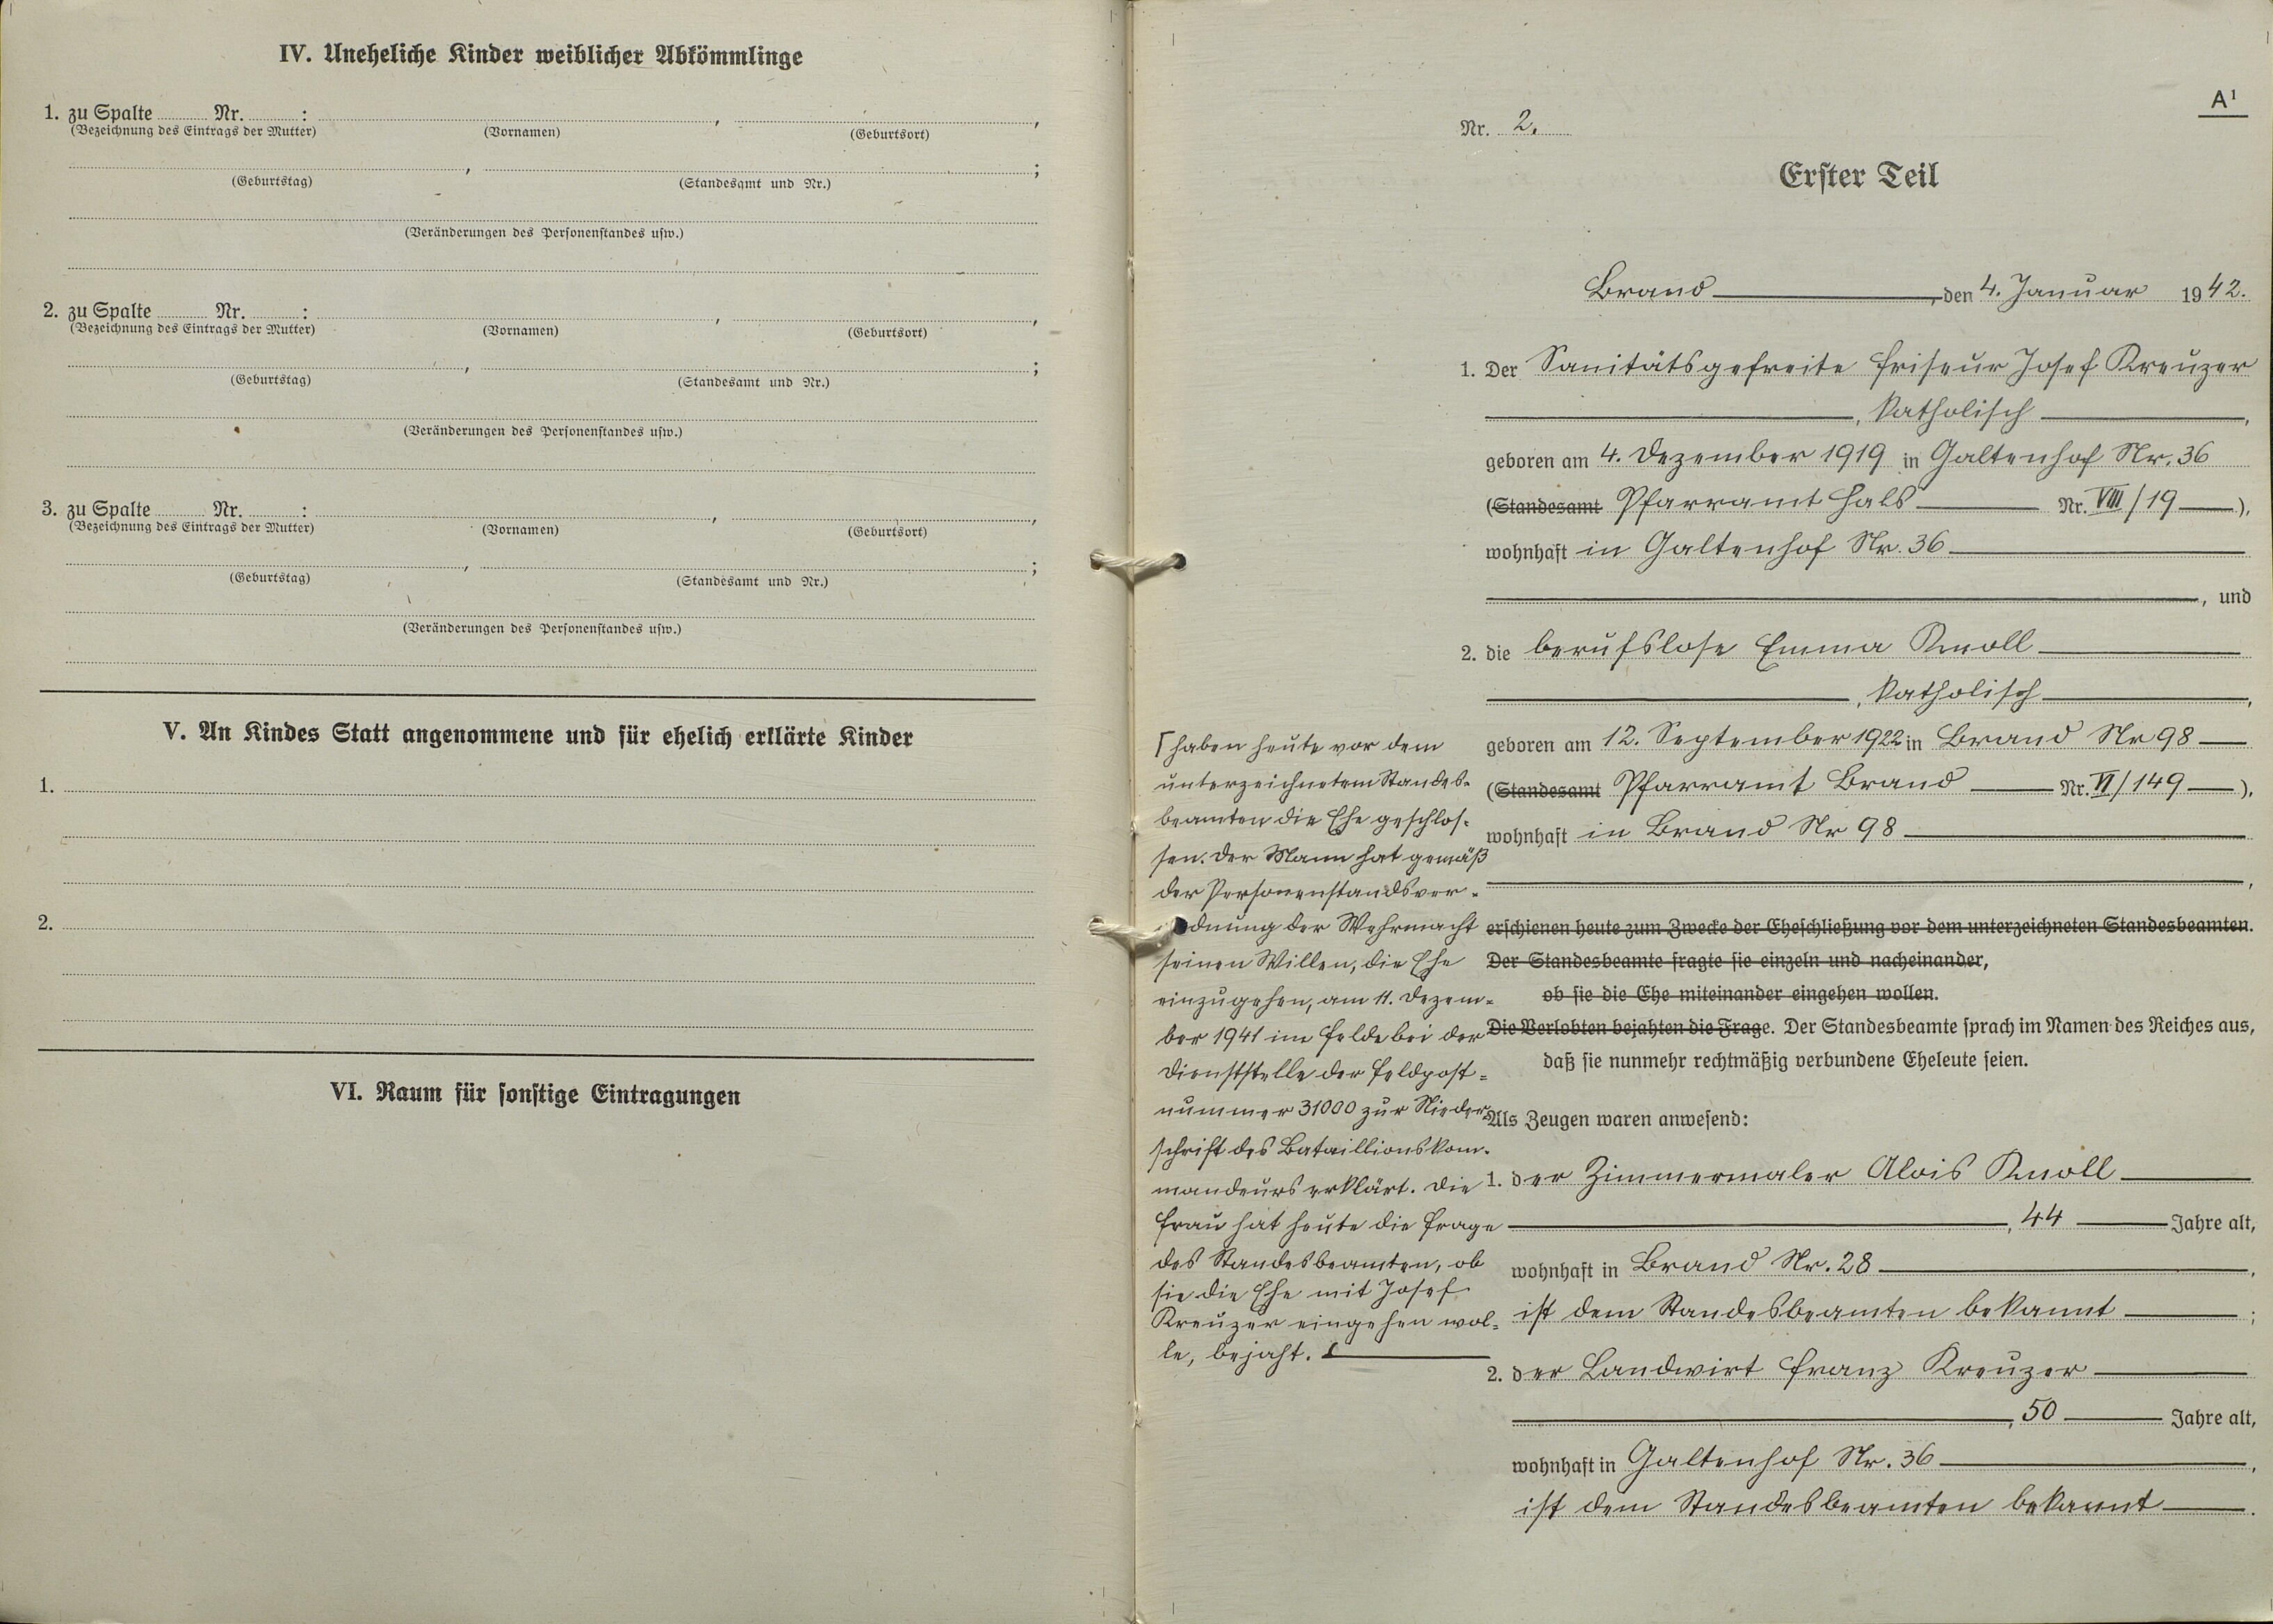 IV. Uneheliche Kinder weiblicher Abkömmlinge
1. zu Spalte ........ Nr. ........ : ........ , ........ ,
(Bezeichnung des Eintrags der Mutter) (Vornamen) (Geburtsort)
........ , ........ ;
(Geburtstag) (Standesamt und Nr.)
(Veränderungen des Personenstandes usw.)
2. zu Spalte ........ Nr. ........ : ........ , ........ ,
(Bezeichnung des Eintrags der Mutter) (Vornamen) (Geburtsort)
........ , ........ ;
(Geburtstag) (Standesamt und Nr.)
(Veränderungen des Personenstandes usw.)
3. zu Spalte ........ Nr. ........ : ........ , ........ ,
(Bezeichnung des Eintrags der Mutter) (Vornamen) (Geburtsort)
........ , ........ ;
(Geburtstag) (Standesamt und Nr.)
(Veränderungen des Personenstandes usw.)
V. An Kindes Statt angenommene und für ehelich erklärte Kinder
1.
2.
VI. Raum für sonstige Eintragungen
A¹
Nr. 2.
Erster Teil
Brand, den 4. Januar 1942.
1. Der Sanitätsgefreite Friseur Josef Kreuzer
, katholisch ,
geboren am 4. Dezember 1919 in Galtenhof Nr. 36
(Standesamt Pfarramt Hals Nr. VIII/19 ),
wohnhaft in Galtenhof Nr. 36
, und
2. die berufslose Emma Knoll
, katholisch ,
geboren am 12. September 1922 in Brand Nr 98
(Standesamt Pfarramt Brand Nr. VI/149 ),
wohnhaft in Brand Nr 98
,
erschienen heute zum Zwecke der Eheschließung vor dem unterzeichneten Standesbeamten.
Der Standesbeamte fragte sie einzeln und nacheinander,
ob sie die Ehe miteinander eingehen wollen.
Die Verlobten bejahten die Frage. Der Standesbeamte sprach im Namen des Reiches aus,
daß sie nunmehr rechtmäßig verbundene Eheleute seien.
Als Zeugen waren anwesend:
1. der Zimmermaler Alois Knoll
, 44 Jahre alt,
wohnhaft in Brand Nr. 28 ,
ist dem Standesbeamten bekannt ;
2. der Landwirt Franz Kreuzer
, 50 Jahre alt,
wohnhaft in Galtenhof Nr. 36 ,
ist dem Standesbeamten bekannt .
haben heute vor dem
unterzeichnetem Standes-
beamten die Ehe geschlos-
sen. Der Mann hat gemäß
der Personenstandsver-
dnung der Wehrmacht
seinen Willen, die Ehe
einzugehen, am 11. Dezem-
ber 1941 im Felde bei der
Dienststelle der Feldpost-
nummer 31000 zur Nieder-
schrift des Bataillionskom-
mandeurs erklärt. Die
Frau hat heute die Frage
des Standesbeamten, ob
sie die Ehe mit Josef
Kreuzer eingehen wol-
le, bejaht.